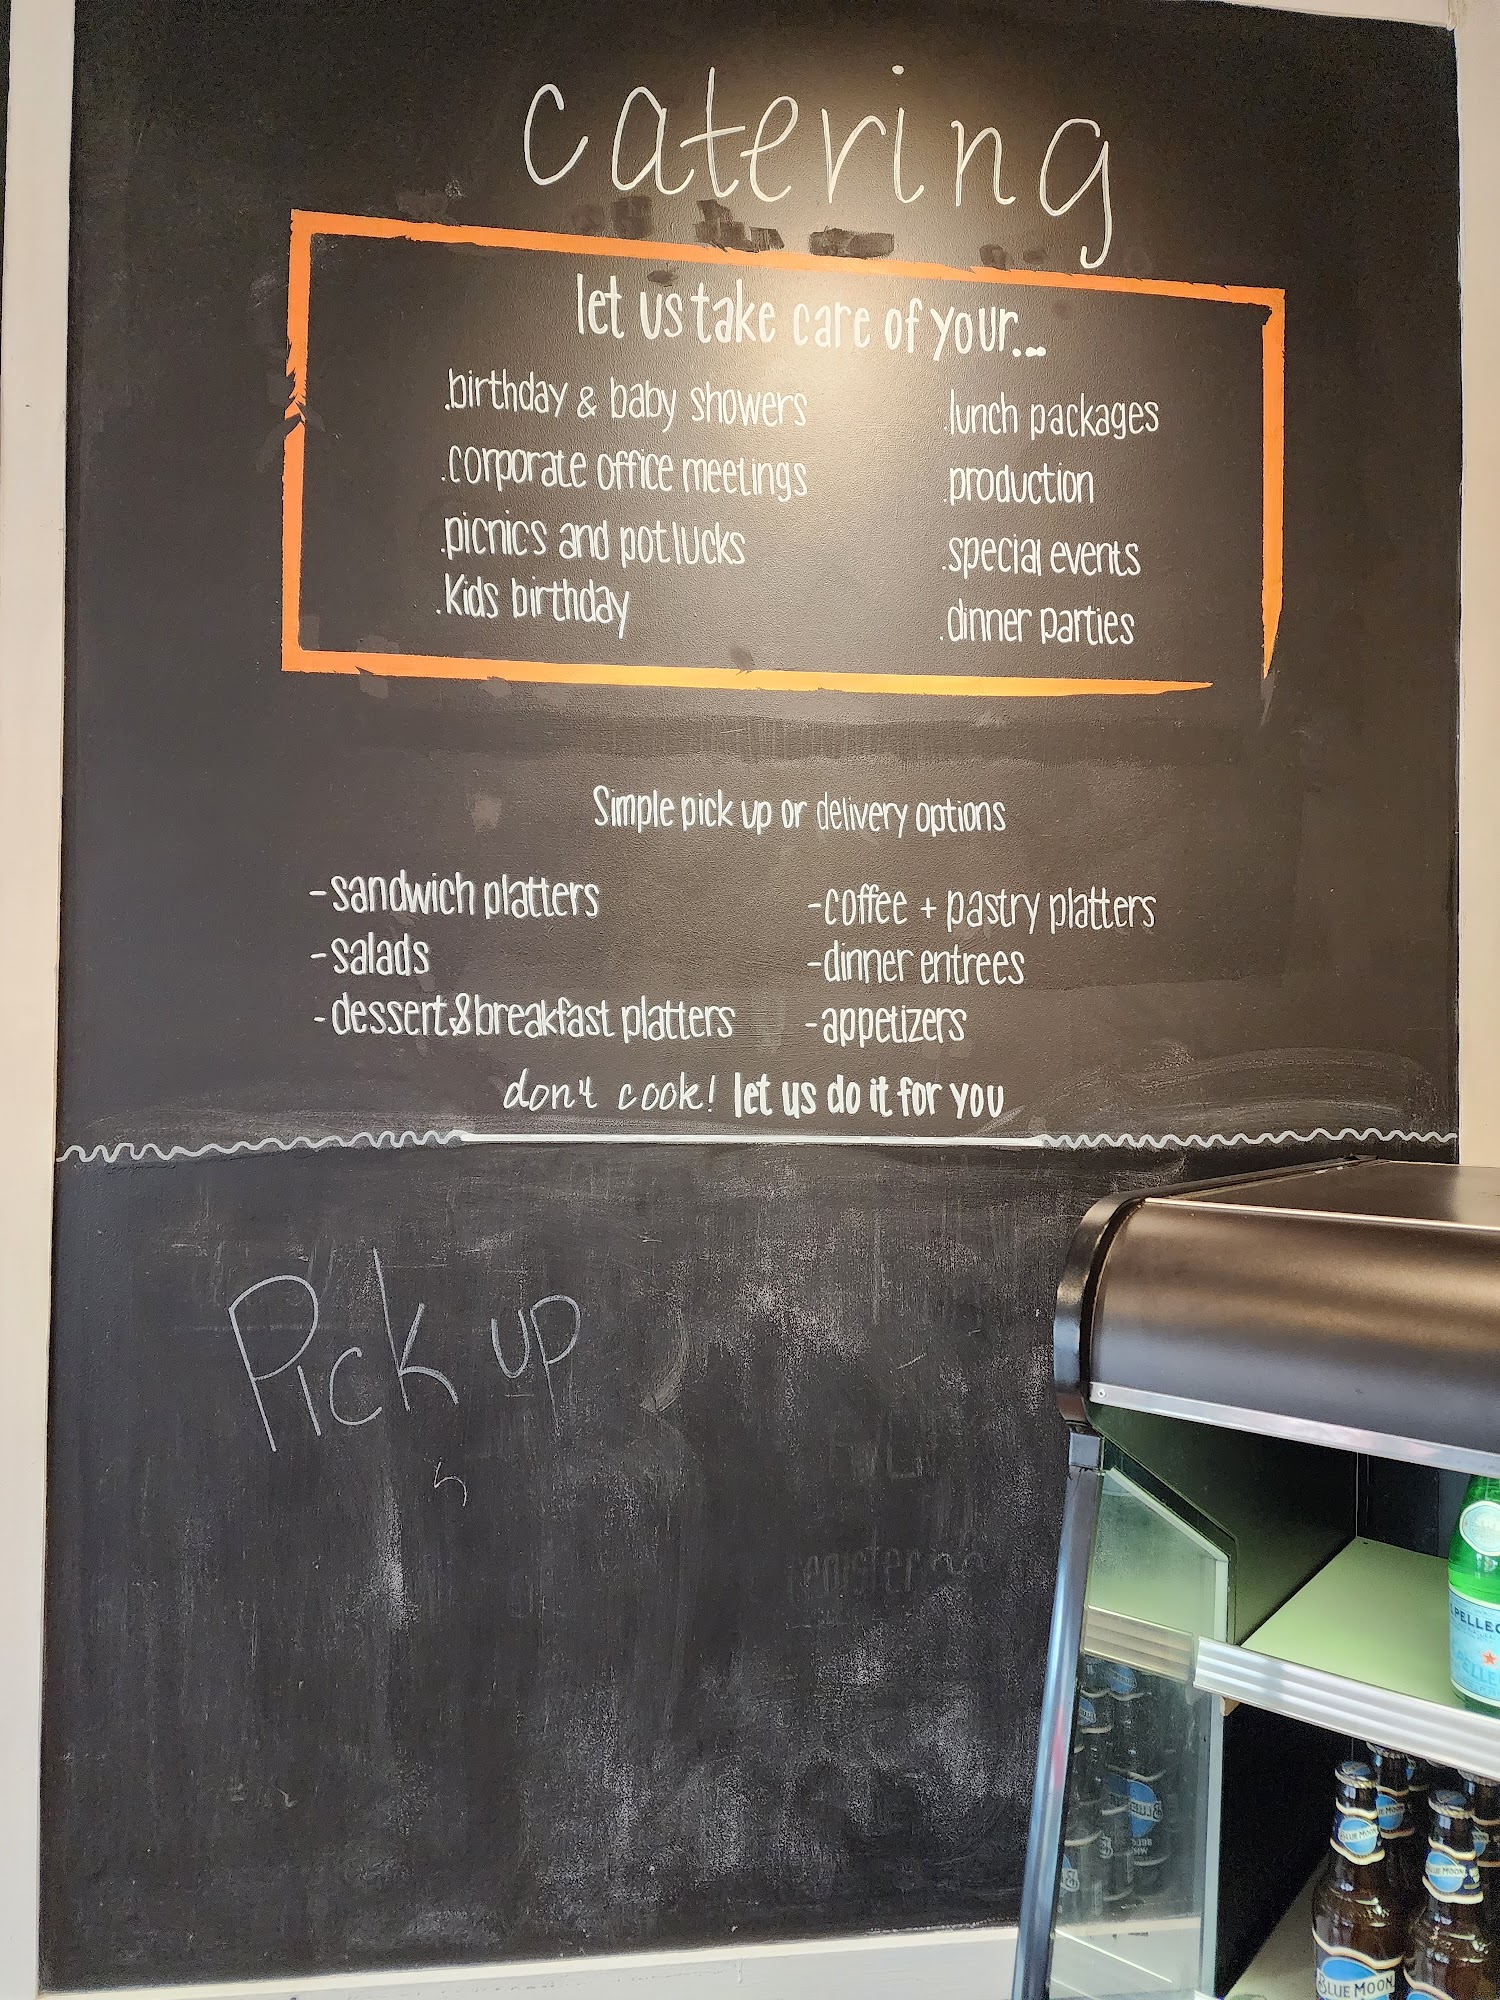 catering
let us take care of your...
.birthday & baby showers
.corporate office meetings
.picnics and potlucks
.Kids birthday
.lunch packages
.production
.special events
.dinner parties
Simple pick up or delivery options
-sandwich platters
-salads
-dessert&breakfast platters
-coffee + pastry platters
-dinner entrees
-appetizers
don't cook! let us do it for you
Pick up
BLUE MOON
BLUE MOON
BLUE MOON